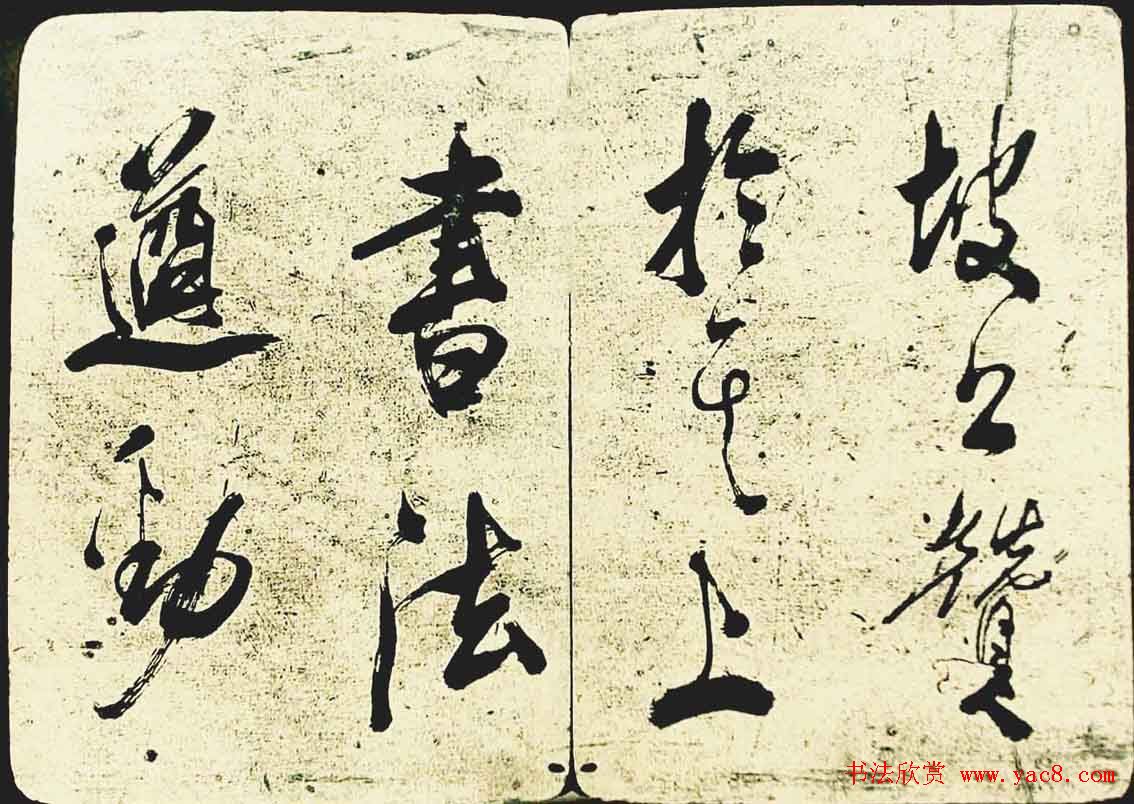 坡公贊
於其上
書法
遒勁
书法欣赏 www.yac8.com